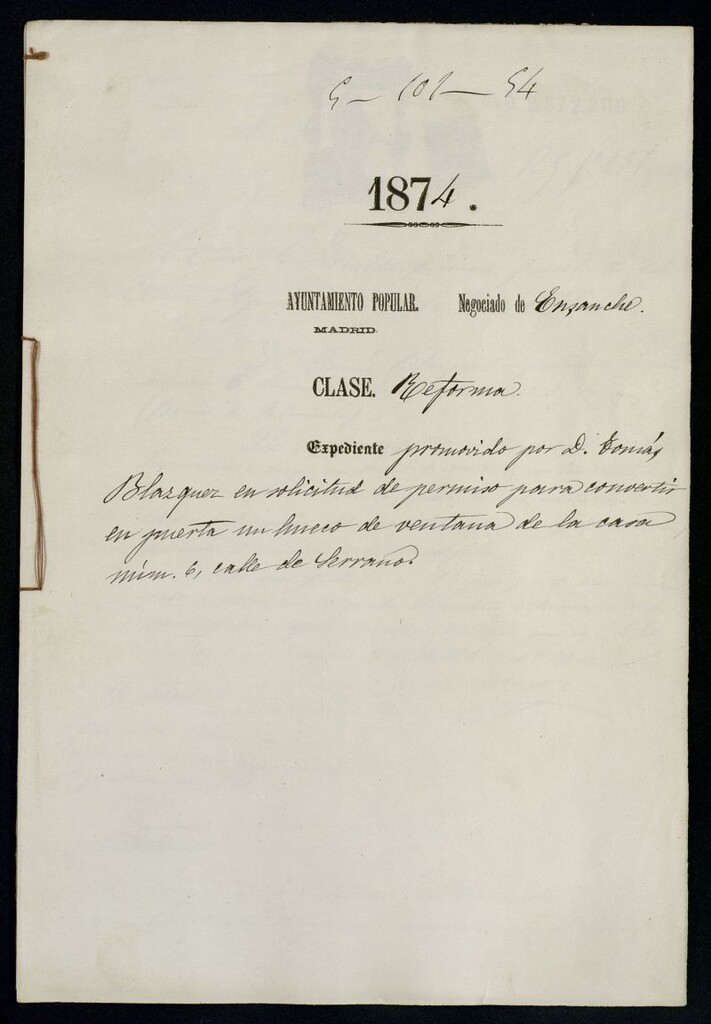 5 — 101 — 54
1874.
AYUNTAMIENTO POPULAR. Negociado de Enzanche.
MADRID.
CLASE. Reforma.
Expediente promovido por D. Tomás
Blazquez en solicitud de permiso para convertir
en puerta un hueco de ventana de la casa
núm. 6, calle de Serrano.